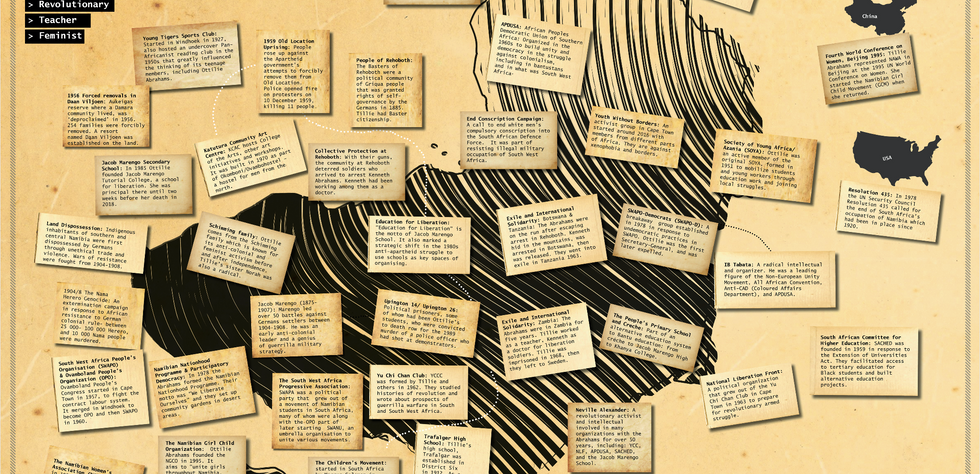 > Revolutionary
> Teacher
> Feminist
Young Tigers Sports Club:
Started in Windhoek in 1927,
also hosted an undercover Pan-
Africanist reading club in the
1950s that greatly influenced
the thinking of its teenage
members, including Ottilie
Abrahams.
1959 Old Location
Uprising: People
rose up against
the Apartheid
government's
attempts to forcibly
remove them from
Old Location.
Police opened fire
on protesters on
10 December 1959,
killing 11 people.
People of Rehoboth:
The Basters of
Rehoboth were a
political community
of Griqua people
that was granted
rights of self-
governance by the
Germans in 1885.
Tillie had Baster
citizenship.
APDUSA: African Peoples
Democratic Union of Southern
Africa: Organized in the
1960s to build unity and
democracy in the struggle
against colonialism,
including in bantustans
and in what was South West
Africa.
China
Fourth World Conference on
Women, Beijing 1995: Tillie
Abrahams represented NAWA in
Beijing at the 1995 UN World
Conference on Women. She
started the Namibian Girl
Child Movement (GCM) when
she returned.
1956 Forced removals in
Daan Viljoen: Aukeigas
reserve where a Damara
community lived, was
'deproclaimed' in 1956.
254 families were forcibly
removed. A resort
named Daan Viljoen was
established on the land.
Katutura Community Art
Centre: KCAC hosts College
of the Arts, other Art
initiatives and workshops.
It was built in 1970 as part
of Okomboni/Ovambohostel,
a hostel for men from the
north.
End Conscription Campaign:
A call to end white men's
compulsory conscription into
the South African Defence
Force. It was part of
resisting illegal military
occupation of South West
Africa.
Youth Without Borders: An
activist group in Cape Town
started around 2016 with
members from different parts
of Africa. They are against
xenophobia and borders.
Society of Young Africa/
Azania (SOYA): Ottilie was
an active member of the
original SOYA, formed in
1951 to mobilize students
and young workers through
education work and joining
local struggles.
USA
Resolution 435: In 1978
the UN Security Council
Resolution 435 called for
the end of South Africa's
occupation of Namibia which
had been in place since
1920.
Jacob Marengo Secondary
School: In 1985 Ottilie
founded Jacob Marengo
Tutorial College, a school
for liberation. She was
principal there until two
weeks before her death in
2018.
Collective Protection at
Rehoboth: With their guns,
the community at Rehoboth
deterred soldiers who
arrived to arrest Kenneth
Abrahams. Kenneth had been
working among them as a
doctor.
Land Dispossession: Indigenous
inhabitants of southern and
central Namibia were first
dispossessed by Germans
through unethical trade and
violence. Wars of resistance
were fought from 1904-1908.
Schimming Family: Ottilie
comes from the Schimming
family which is known for
its anti-colonial and
feminist activism before
and after independence.
Tillie's sister Norah was
also a radical.
Education for Liberation:
"Education for Liberation" is
the motto of Jacob Marengo
School. It also marked a
strategic shift in the 1980s
anti-apartheid struggle to
use schools as key spaces of
organising.
Exile and International
Solidarity: Botswana &
Tanzania: The Abrahams were
on the run after escaping
arrest in Rehoboth. Kenneth
hid in the mountains, was
arrested in Botswana, then
was released. They went into
exile in Tanzania 1963.
SWAPO-Democrats (SWAPO-D): A
breakaway group established
in 1978 in response to
undemocratic practices in
SWAPO. Ottilie was the first
Secretary-General, and was
later expelled.
IB Tabata: A radical intellectual
and organizer. He was a leading
figure of the Non-European Unity
Movement, All African Convention,
Anti-CAD (Coloured Affairs
Department), and APDUSA.
1904/8 The Nama
Herero Genocide: An
extermination campaign
in response to African
resistance to German
colonial rule- between
25 000- 100 000 Herero
and 10 000 Nama people
were murdered.
Jacob Marengo (1875-
1907): Marengo led
over 50 battles against
Germans settlers between
1904-1908. He was an
early anti-colonial
leader and a genius
of guerrilla military
strategy.
Upington 14/ Upington 26:
Political prisoners, some
of whom had been Ottilie's
students, who were convicted
to death row for the 1989
murder of a police officer who
had shot at demonstrators.
Exile and International
Solidarity: Zambia: The
Abrahams were in Zambia for
five years. Tillie worked
as a teacher, Kenneth as
a doctor for liberation
soldiers. Tillie was
imprisoned in 1968, then
they left to Sweden.
The People's Primary School
and Creche: Part of an
alternative education system
to Bantu education: from
crèche to Jacob Marengo High
to Khanya College.
South African Committee for
Higher Education: SACHED was
founded in 1959 in response to
the Extension of Universities
Act. They facilitated access
to tertiary education for
Black students and built
alternative education
projects.
South West Africa People's
Organisation (SWAPO)
& Ovamboland People's
Organization (OPO):
Ovamboland People's
Congress started in Cape
Town in 1957, to fight the
contract labour system.
It merged in Windhoek to
become OPO and then SWAPO
in 1960.
Namibian Nationhood
Programme & Participatory
Democracy: In 1978 the
Abrahams formed the Namibian
Nationhood Programme. Their
motto was "We Liberate
Ourselves" and they set up
community gardens in dense
areas.
The South West Africa
Progressive Association:
SWAPA was a political
party that grew out of
a movement of Namibian
students in South Africa,
many of whom were along
with the OPO part of
later starting SWANU, an
umbrella organisation to
unite various movements.
Yu Chi Chan Club: YCCC
was formed by Tillie and
others in 1962. They studied
histories of revolution and
wrote about prospects of
guerrilla warfare in South
and South West Africa.
National Liberation Front:
A political organization
that grew out of the Yu
Chi Chan Club in Cape
Town in 1963 to prepare
for revolutionary armed
struggle.
Neville Alexander: A
revolutionary activist
and intellectual
involved in many
organizations with the
Abrahams for over 50
years, including: YCC,
NLF, APDUSA, SACHED,
and the Jacob Marengo
School.
The Namibian Girl Child
Organization: Ottilie
Abrahams founded the
NGCO in 1995. It
aims to "unite girls
throughout Namibia
Trafalgar High
School: Tillie's
high school,
Trafalgar was
established in
District Six
in 1912. In
The Children's Movement:
started in South Africa
The Namibian Women's